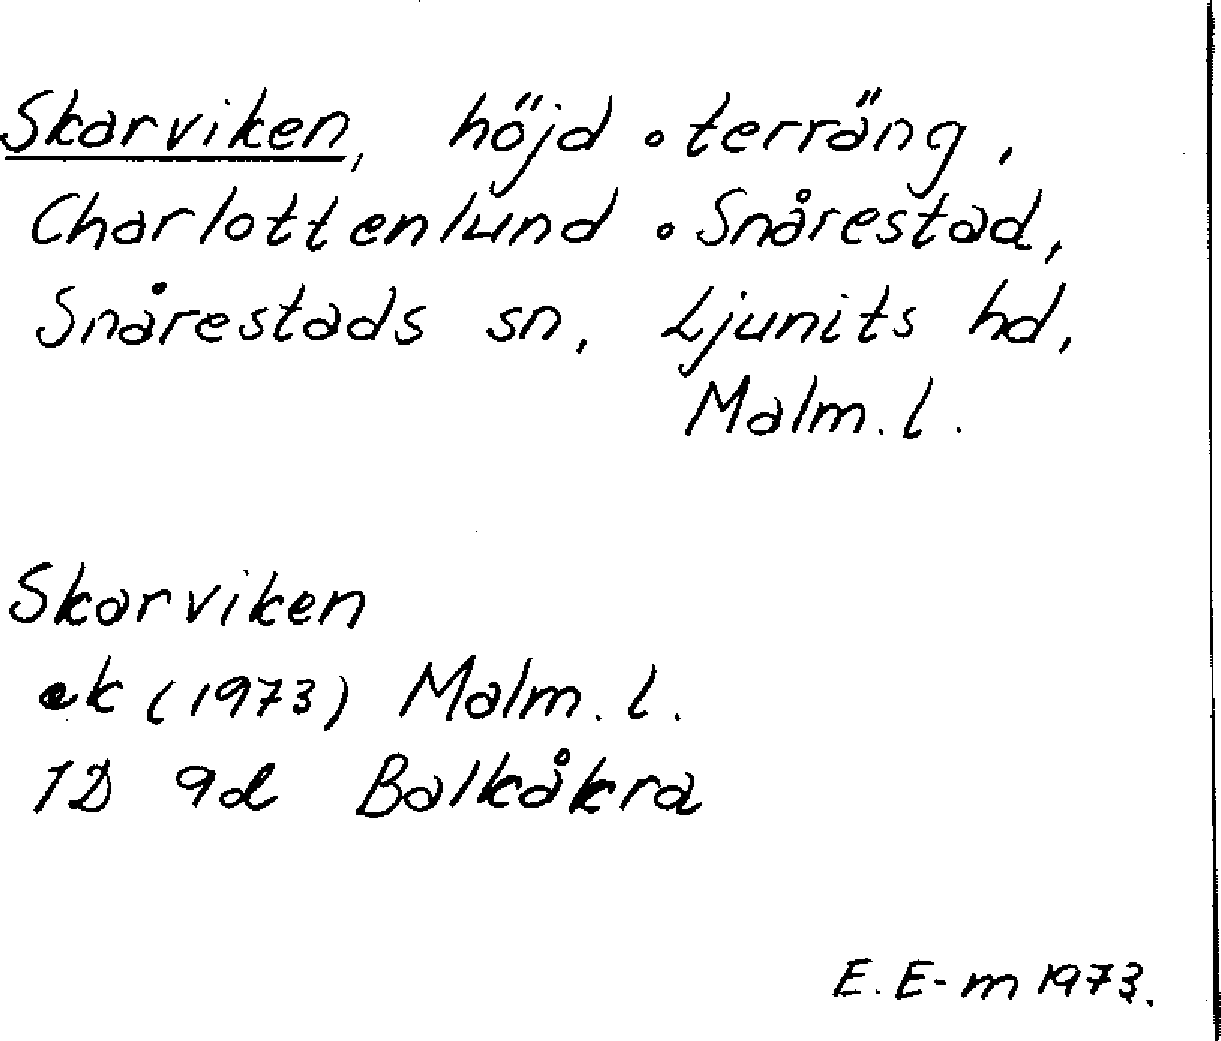 Skarviken, höjd o. terräng,
Charlottenlund o. Snårestad,
Snårestads sn, Ljunits hd,
Malm. l.
Skarviken
ek (1973) Malm. l.
1D 9d Balkåkra
E. E-m 1973.